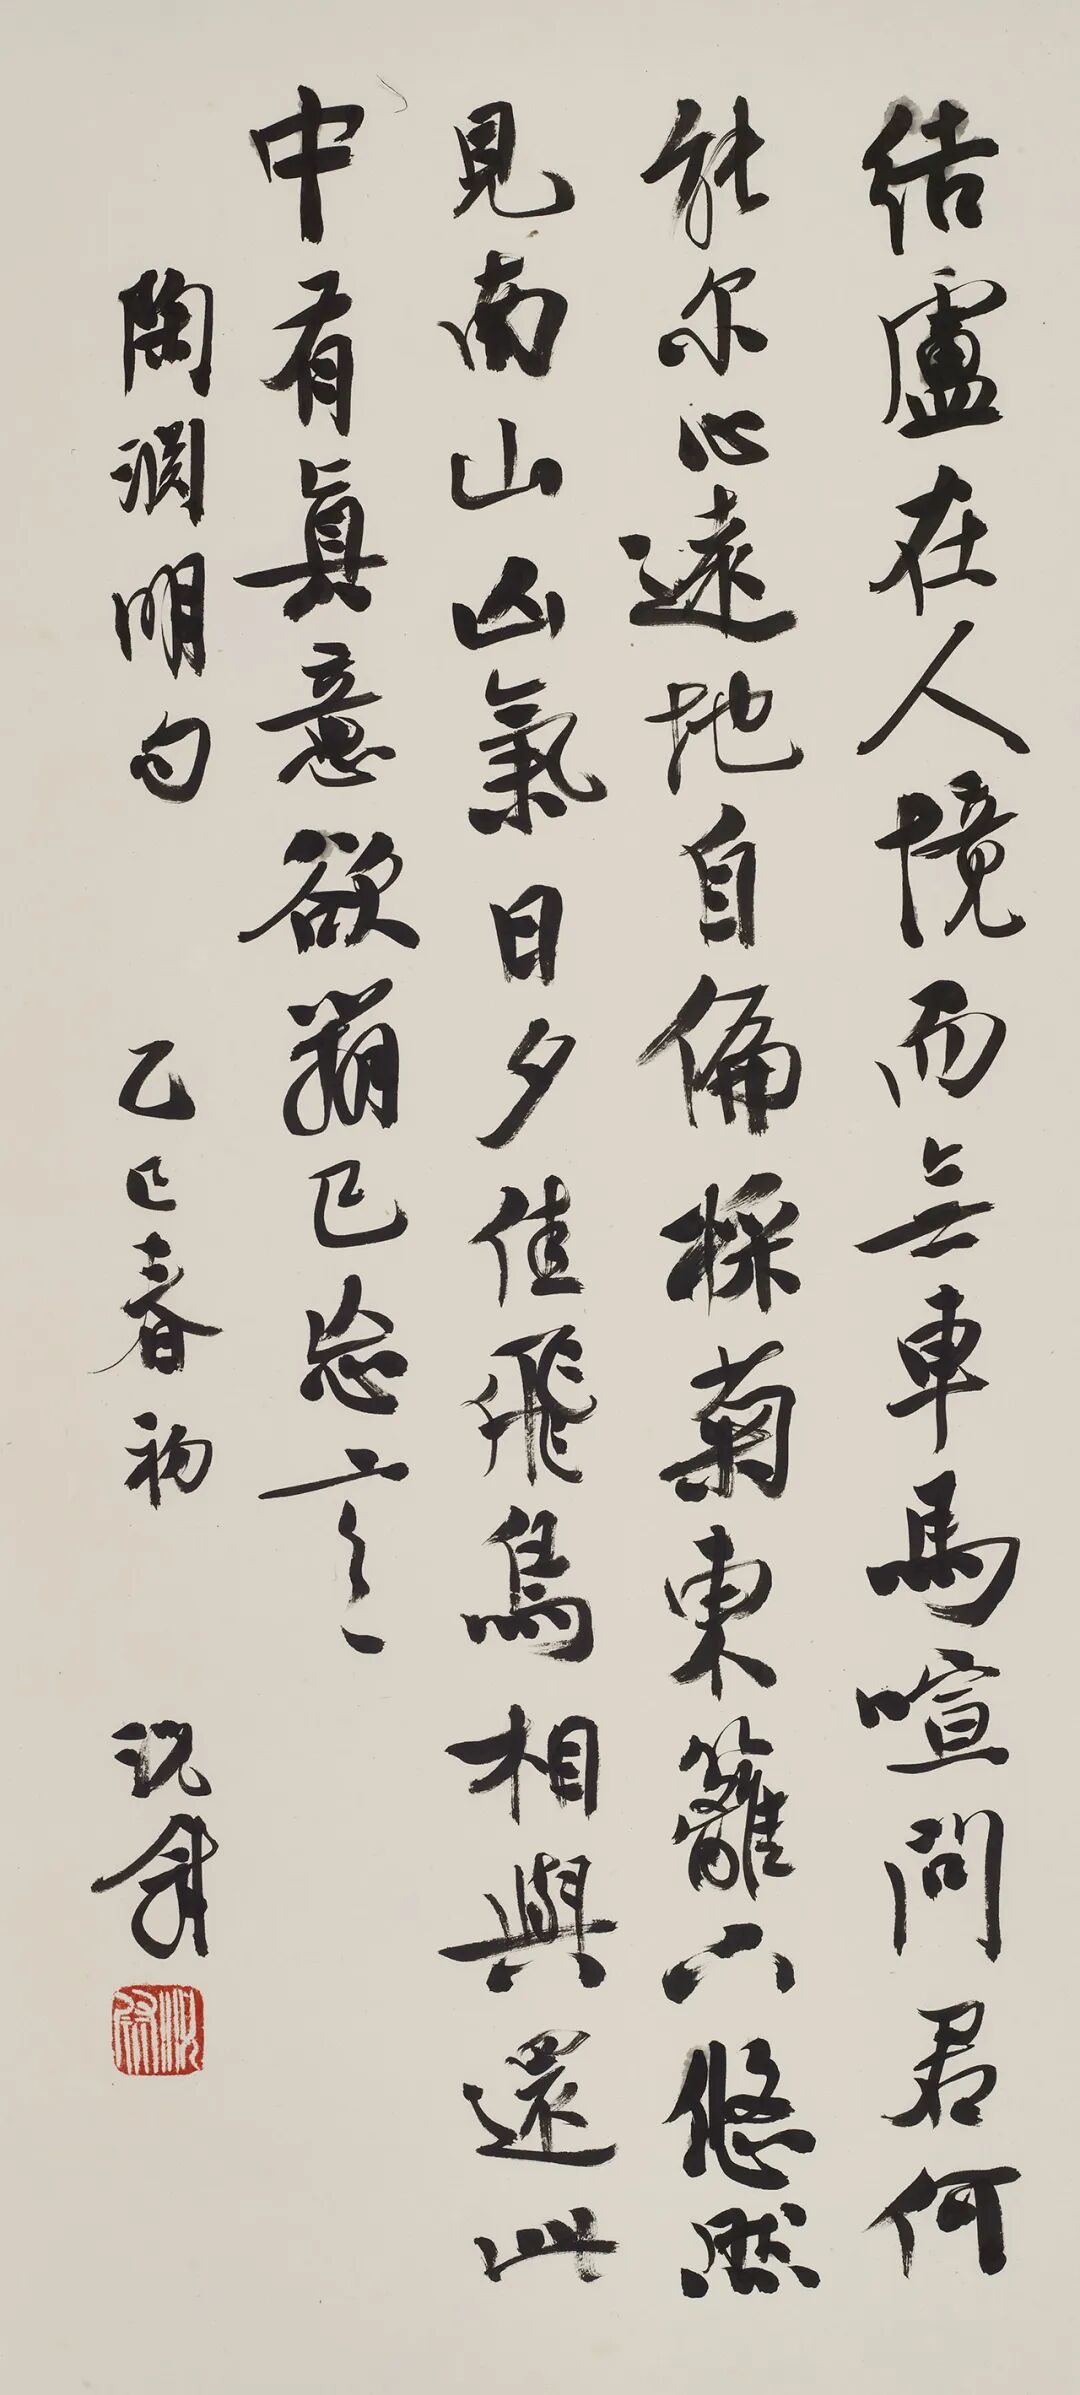 结盧在人境而無車馬喧問君何
能尔心遠地自偏採菊東籬下悠然
見南山山氣日夕佳飛鳥相與還此
中有真意欲辯已忘言
陶淵明句
乙巳春初
沈尹